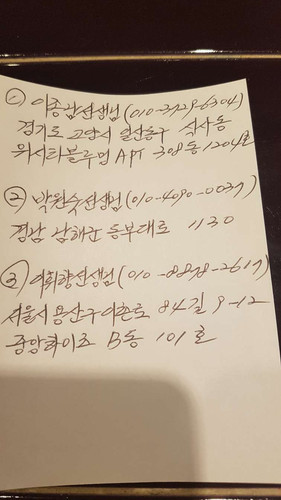 ① 이종광선생님 (010-3729-6304)
경기도 고양시 일산동구 식사동
위시티블루밍 APT 308동 1204호
② 박원숙선생님 (010-4090-0037)
경남 남해군 동부대로 1130
③ 이휘향선생님 (010-8838-2617)
서울시 용산구 이촌로 84길 9-12
중앙하이츠 B동 101호